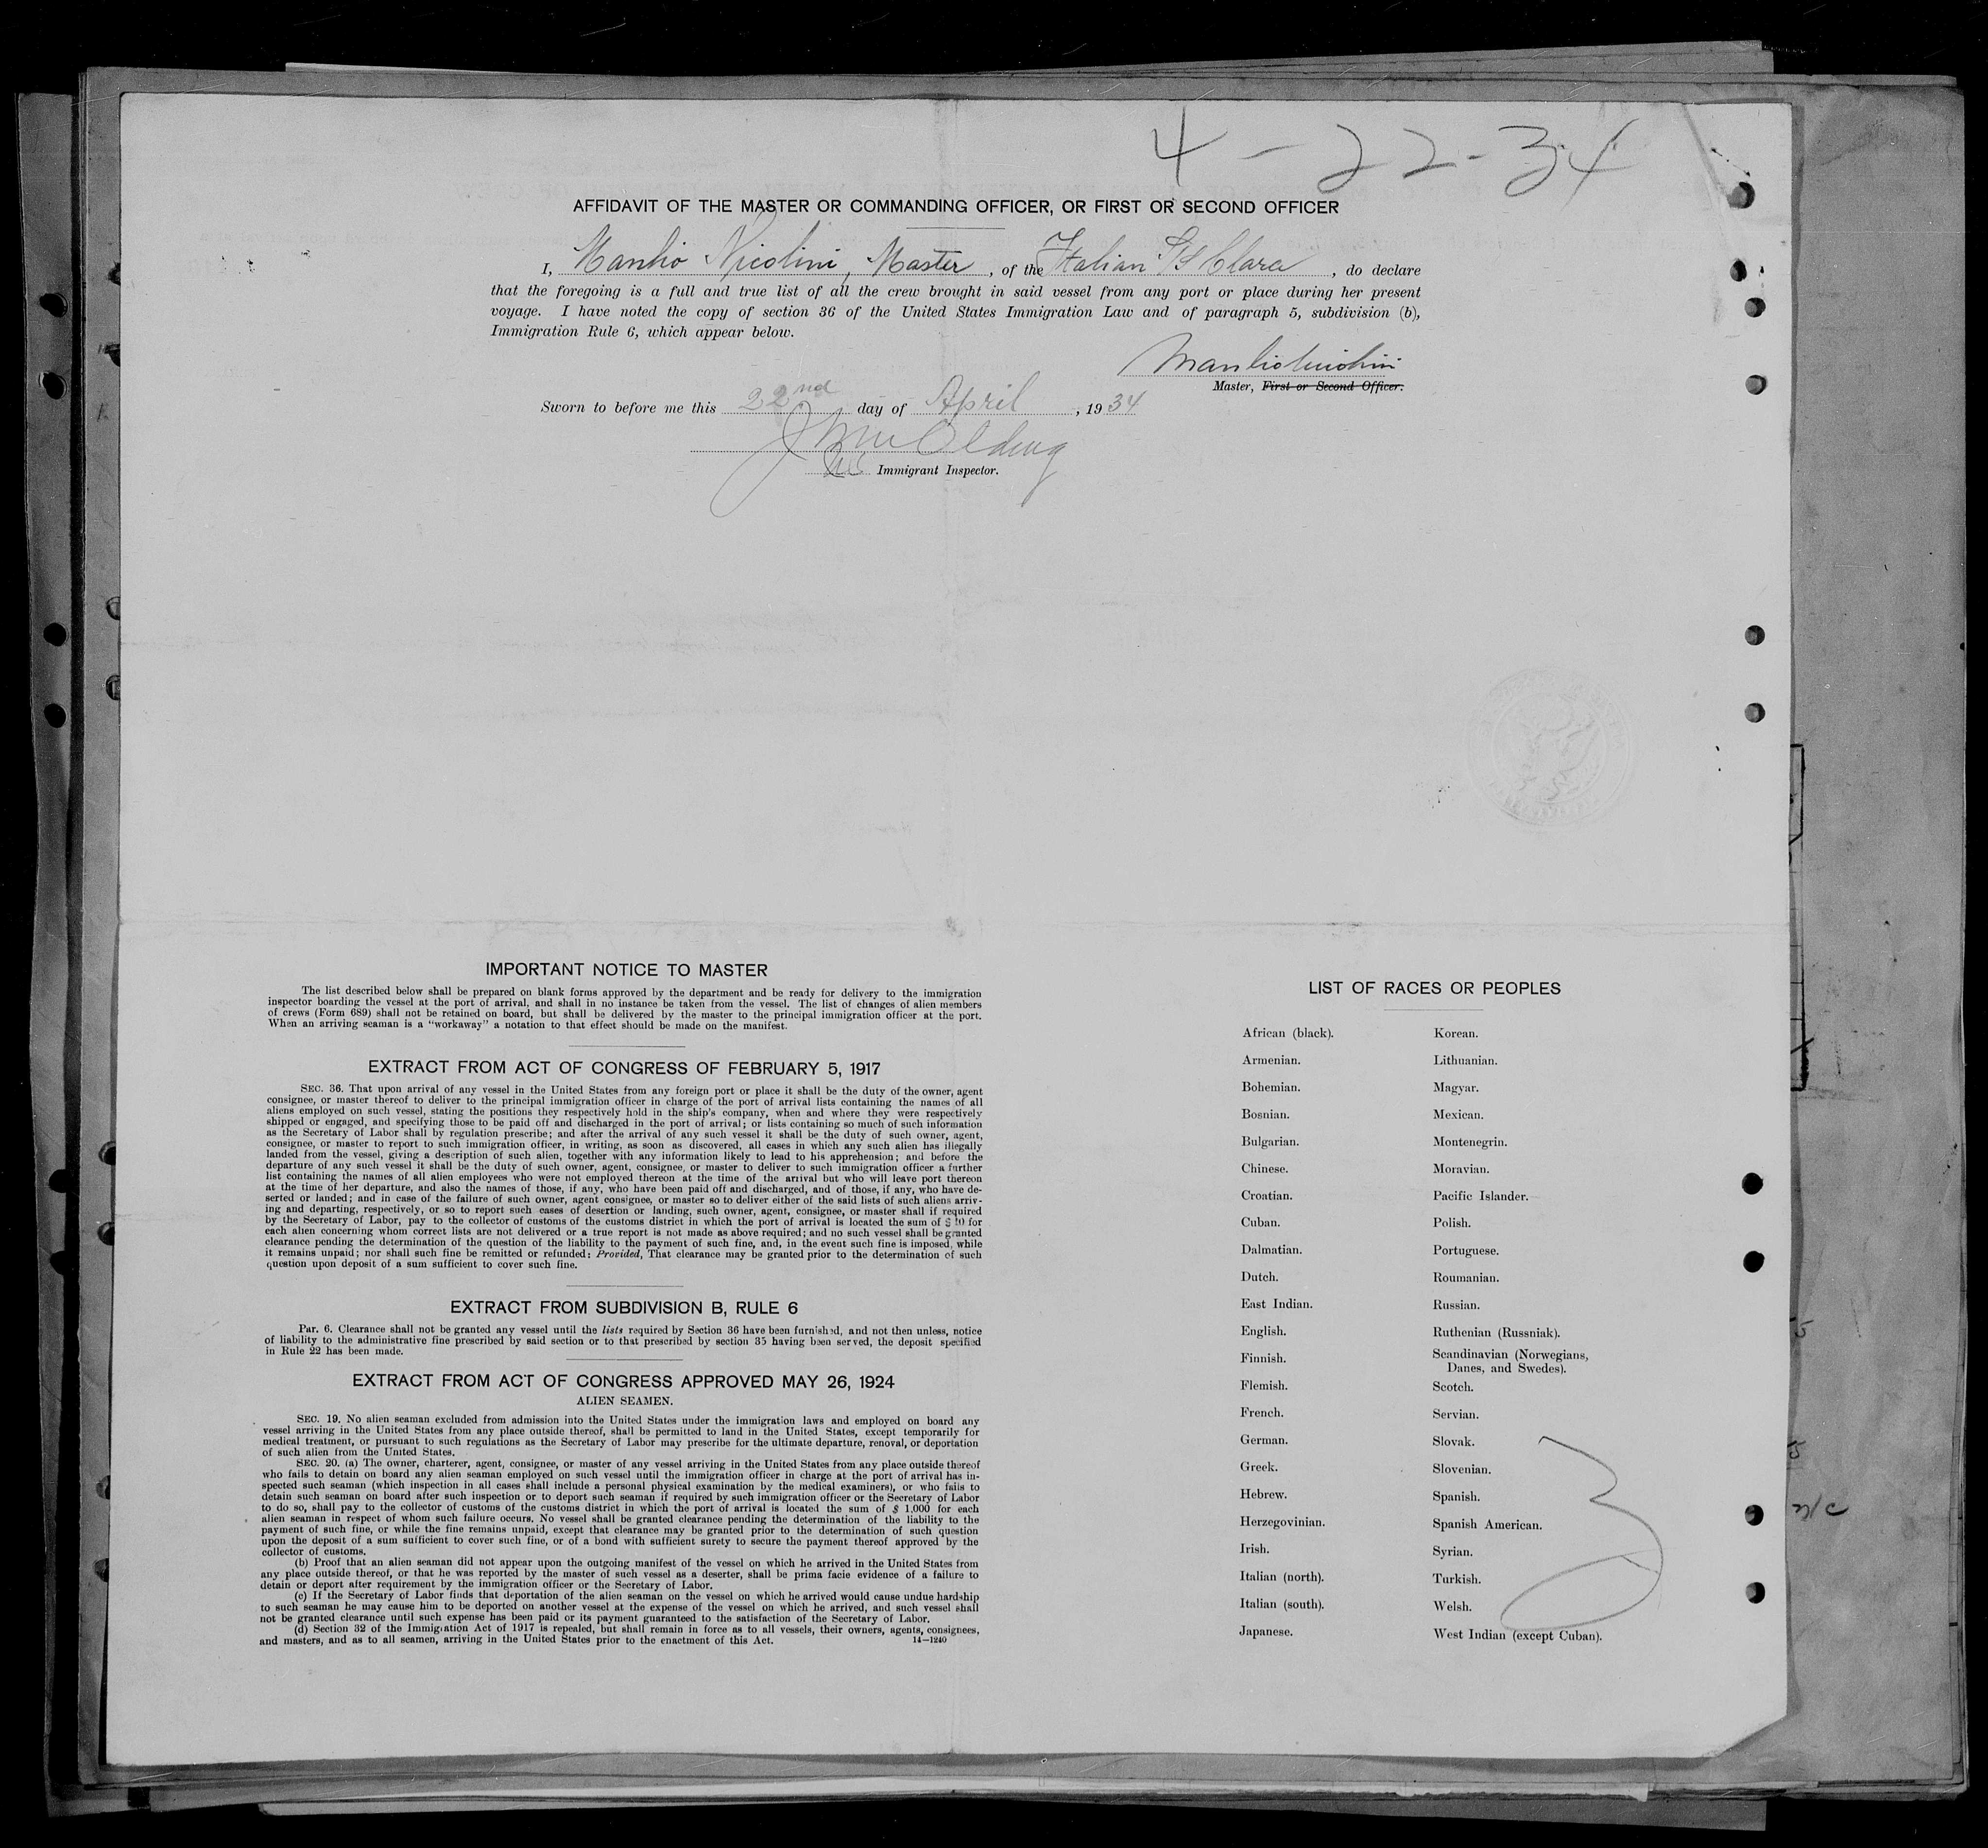 4-22-34
AFFIDAVIT OF THE MASTER OR COMMANDING OFFICER, OR FIRST OR SECOND OFFICER
I, Manlio Nicolini, Master, of the Italian SS Clara, do declare
that the foregoing is a full and true list of all the crew brought in said vessel from any port or place during her present
voyage. I have noted the copy of section 36 of the United States Immigration Law and of paragraph 5, subdivision (b),
Immigration Rule 6, which appear below.
Manlio Nicolini
Master, First or Second Officer.
Sworn to before me this 22nd day of April, 1934
Immigrant Inspector.
IMPORTANT NOTICE TO MASTER
The list described below shall be prepared on blank forms approved by the department and be ready for delivery to the immigration
inspector boarding the vessel at the port of arrival, and shall in no instance be taken from the vessel. The list of changes of alien members
of crews (Form 689) shall not be retained on board, but shall be delivered by the master to the principal immigration officer at the port.
When an arriving seaman is a "workaway" a notation to that effect should be made on the manifest.
EXTRACT FROM ACT OF CONGRESS OF FEBRUARY 5, 1917
SEC. 36. That upon arrival of any vessel in the United States from any foreign port or place it shall be the duty of the owner, agent
consignee, or master thereof to deliver to the principal immigration officer in charge of the port of arrival lists containing the names of all
aliens employed on such vessel, stating the positions they respectively hold in the ship's company, when and where they were respectively
shipped or engaged, and specifying those to be paid off and discharged in the port of arrival; or lists containing so much of such information
as the Secretary of Labor shall by regulation prescribe; and after the arrival of any such vessel it shall be the duty of such owner, agent,
consignee, or master to report to such immigration officer, in writing, as soon as discovered, all cases in which any such alien has illegally
landed from the vessel, giving a description of such alien, together with any information likely to lead to his apprehension; and before the
departure of any such vessel it shall be the duty of such owner, agent, consignee, or master to deliver to such immigration officer a further
list containing the names of all alien employees who were not employed thereon at the time of the arrival but who will leave port thereon
at the time of her departure, and also the names of those, if any, who have been paid off and discharged, and of those, if any, who have de-
serted or landed; and in case of the failure of such owner, agent consignee, or master so to deliver either of the said lists of such aliens arriv-
ing and departing, respectively, or so to report such cases of desertion or landing, such owner, agent, consignee, or master shall if required
by the Secretary of Labor, pay to the collector of customs of the customs district in which the port of arrival is located the sum of $10 for
each alien concerning whom correct lists are not delivered or a true report is not made as above required; and no such vessel shall be granted
clearance pending the determination of the question of the liability to the payment of such fine, and, in the event such fine is imposed, while
it remains unpaid; nor shall such fine be remitted or refunded: Provided, That clearance may be granted prior to the determination of such
question upon deposit of a sum sufficient to cover such fine.
EXTRACT FROM SUBDIVISION B, RULE 6
Par. 6. Clearance shall not be granted any vessel until the lists required by Section 36 have been furnished, and not then unless, notice
of liability to the administrative fine prescribed by said section or to that prescribed by section 35 having been served, the deposit specified
in Rule 22 has been made.
EXTRACT FROM ACT OF CONGRESS APPROVED MAY 26, 1924
ALIEN SEAMEN.
SEC. 19. No alien seaman excluded from admission into the United States under the immigration laws and employed on board any
vessel arriving in the United States from any place outside thereof, shall be permitted to land in the United States, except temporarily for
medical treatment, or pursuant to such regulations as the Secretary of Labor may prescribe for the ultimate departure, removal, or deportation
of such alien from the United States.
SEC. 20. (a) The owner, charterer, agent, consignee, or master of any vessel arriving in the United States from any place outside thereof
who fails to detain on board any alien seaman employed on such vessel until the immigration officer in charge at the port of arrival has in-
spected such seaman (which inspection in all cases shall include a personal physical examination by the medical examiners), or who fails to
detain such seaman on board after such inspection or to deport such seaman if required by such immigration officer or the Secretary of Labor
to do so, shall pay to the collector of customs of the customs district in which the port of arrival is located the sum of $ 1,000 for each
alien seaman in respect of whom such failure occurs. No vessel shall be granted clearance pending the determination of the liability to the
payment of such fine, or while the fine remains unpaid, except that clearance may be granted prior to the determination of such question
upon the deposit of a sum sufficient to cover such fine, or of a bond with sufficient surety to secure the payment thereof approved by the
collector of customs.
(b) Proof that an alien seaman did not appear upon the outgoing manifest of the vessel on which he arrived in the United States from
any place outside thereof, or that he was reported by the master of such vessel as a deserter, shall be prima facie evidence of a failure to
detain or deport after requirement by the immigration officer or the Secretary of Labor.
(c) If the Secretary of Labor finds that deportation of the alien seaman on the vessel on which he arrived would cause undue hardship
to such seaman he may cause him to be deported on another vessel at the expense of the vessel on which he arrived, and such vessel shall
not be granted clearance until such expense has been paid or its payment guaranteed to the satisfaction of the Secretary of Labor.
(d) Section 32 of the Immigration Act of 1917 is repealed, but shall remain in force as to all vessels, their owners, agents, consignees,
and masters, and as to all seamen, arriving in the United States prior to the enactment of this Act. 14-1240
LIST OF RACES OR PEOPLES
African (black).
Armenian.
Bohemian.
Bosnian.
Bulgarian.
Chinese.
Croatian.
Cuban.
Dalmatian.
Dutch.
East Indian.
English.
Finnish.
Flemish.
French.
German.
Greek.
Hebrew.
Herzegovinian.
Irish.
Italian (north).
Italian (south).
Japanese.
Korean.
Lithuanian.
Magyar.
Mexican.
Montenegrin.
Moravian.
Pacific Islander.
Polish.
Portuguese.
Roumanian.
Russian.
Ruthenian (Russniak).
Scandinavian (Norwegians,
Danes, and Swedes).
Scotch.
Servian.
Slovak.
Slovenian.
Spanish.
Spanish American.
Syrian.
Turkish.
Welsh.
West Indian (except Cuban).
3